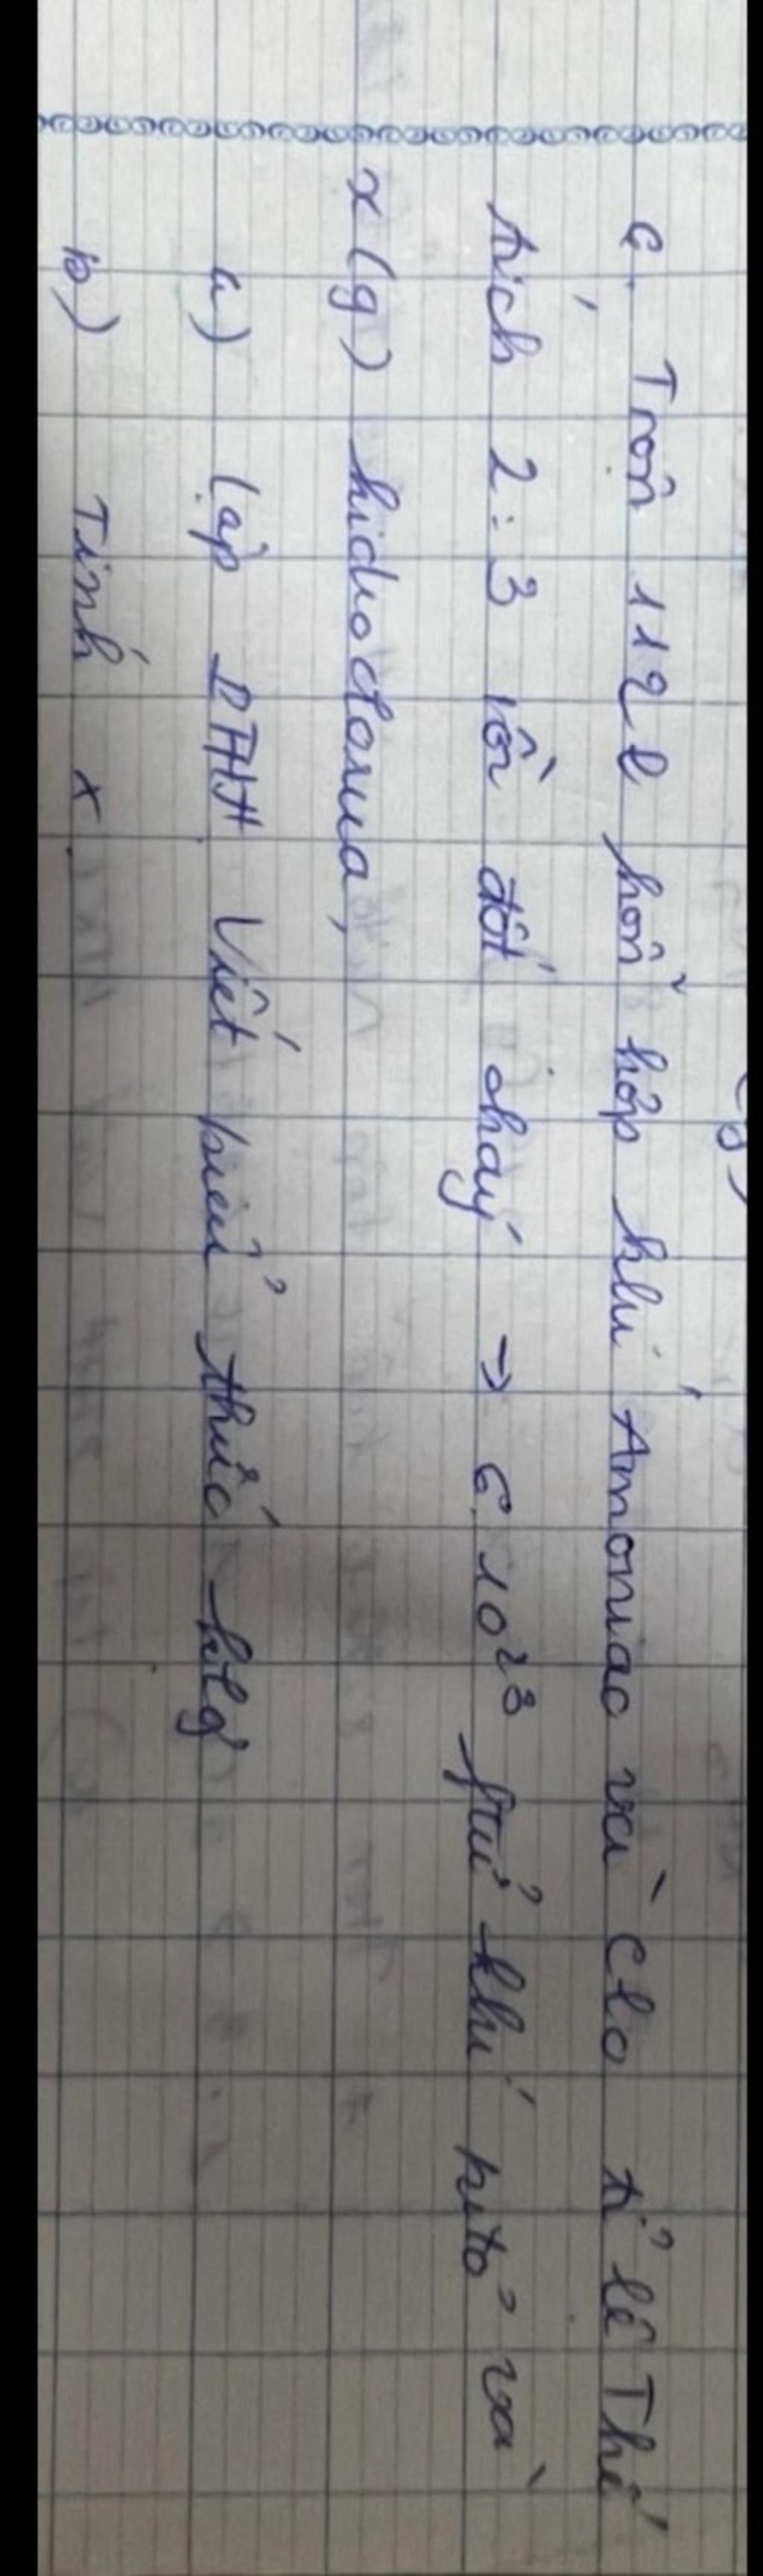 c. Trộn 112l hỗn hợp khí Amoniac và Clo tỉ lệ Thể
tích 2:3 rồi đốt cháy → 6.10²³ ptử khí nitơ và
x(g) hidro clorua,
a) Lập PTHH Viết biểu thức klg
b) Tính x